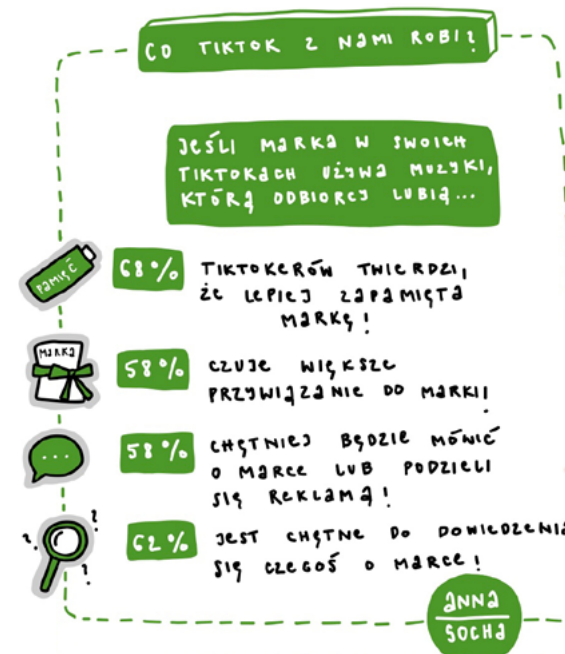 CO TIKTOK Z NAMI ROBI?
JEŚLI MARKA W SWOICH
TIKTOKACH UŻYWA MUZYKI,
KTÓRĄ ODBIORCY LUBIĄ...
PAMIĘĆ
68% TIKTOKERÓW TWIERDZI,
ŻE LEPIEJ ZAPAMIĘTA
MARKĘ!
MARKA
58% CZUJE WIĘKSZE
PRZYWIĄZANIE DO MARKI!
58% CHĘTNIEJ BĘDZIE MÓWIĆ
O MARCE LUB PODZIELI
SIĘ REKLAMĄ!
? ? ? ?
62% JEST CHĘTNE DO DOWIEDZENIA
SIĘ CZEGOŚ O MARCE!
ANNA
SOCHA